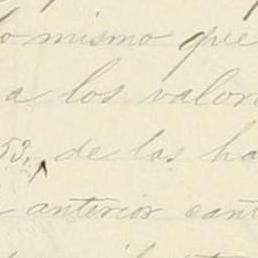 lo mismo que
a los valor
53, de las ha
anterior cant